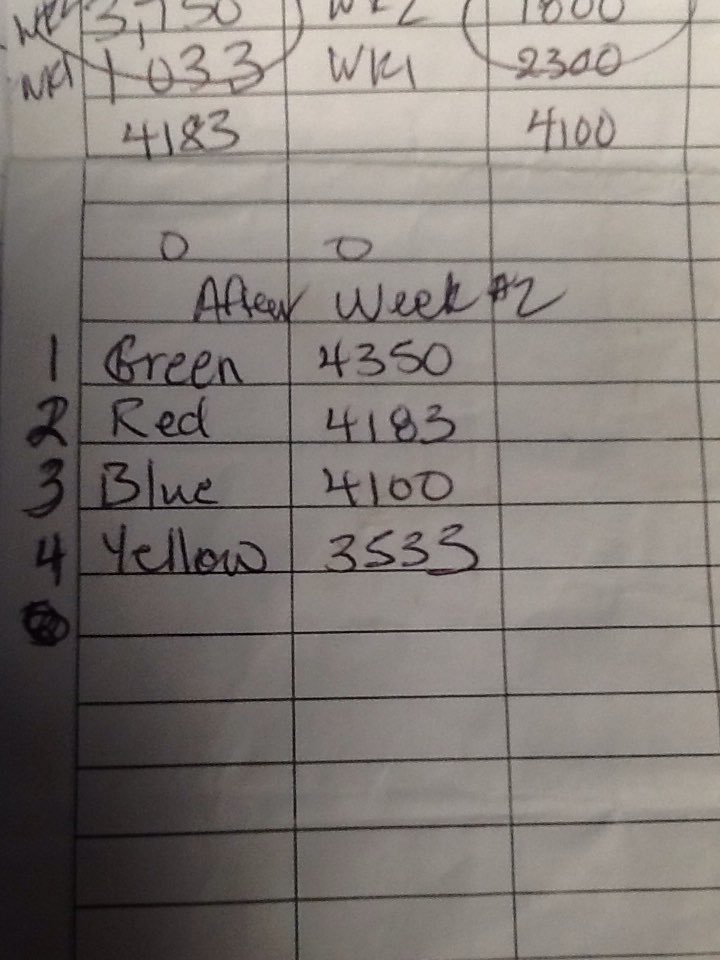 WK2 3,150 WK2 1800
WK1 1033 WK1 2300
4183 4100
0 0
After Week #2
1 Green 4350
2 Red 4183
3 Blue 4100
4 Yellow 3533